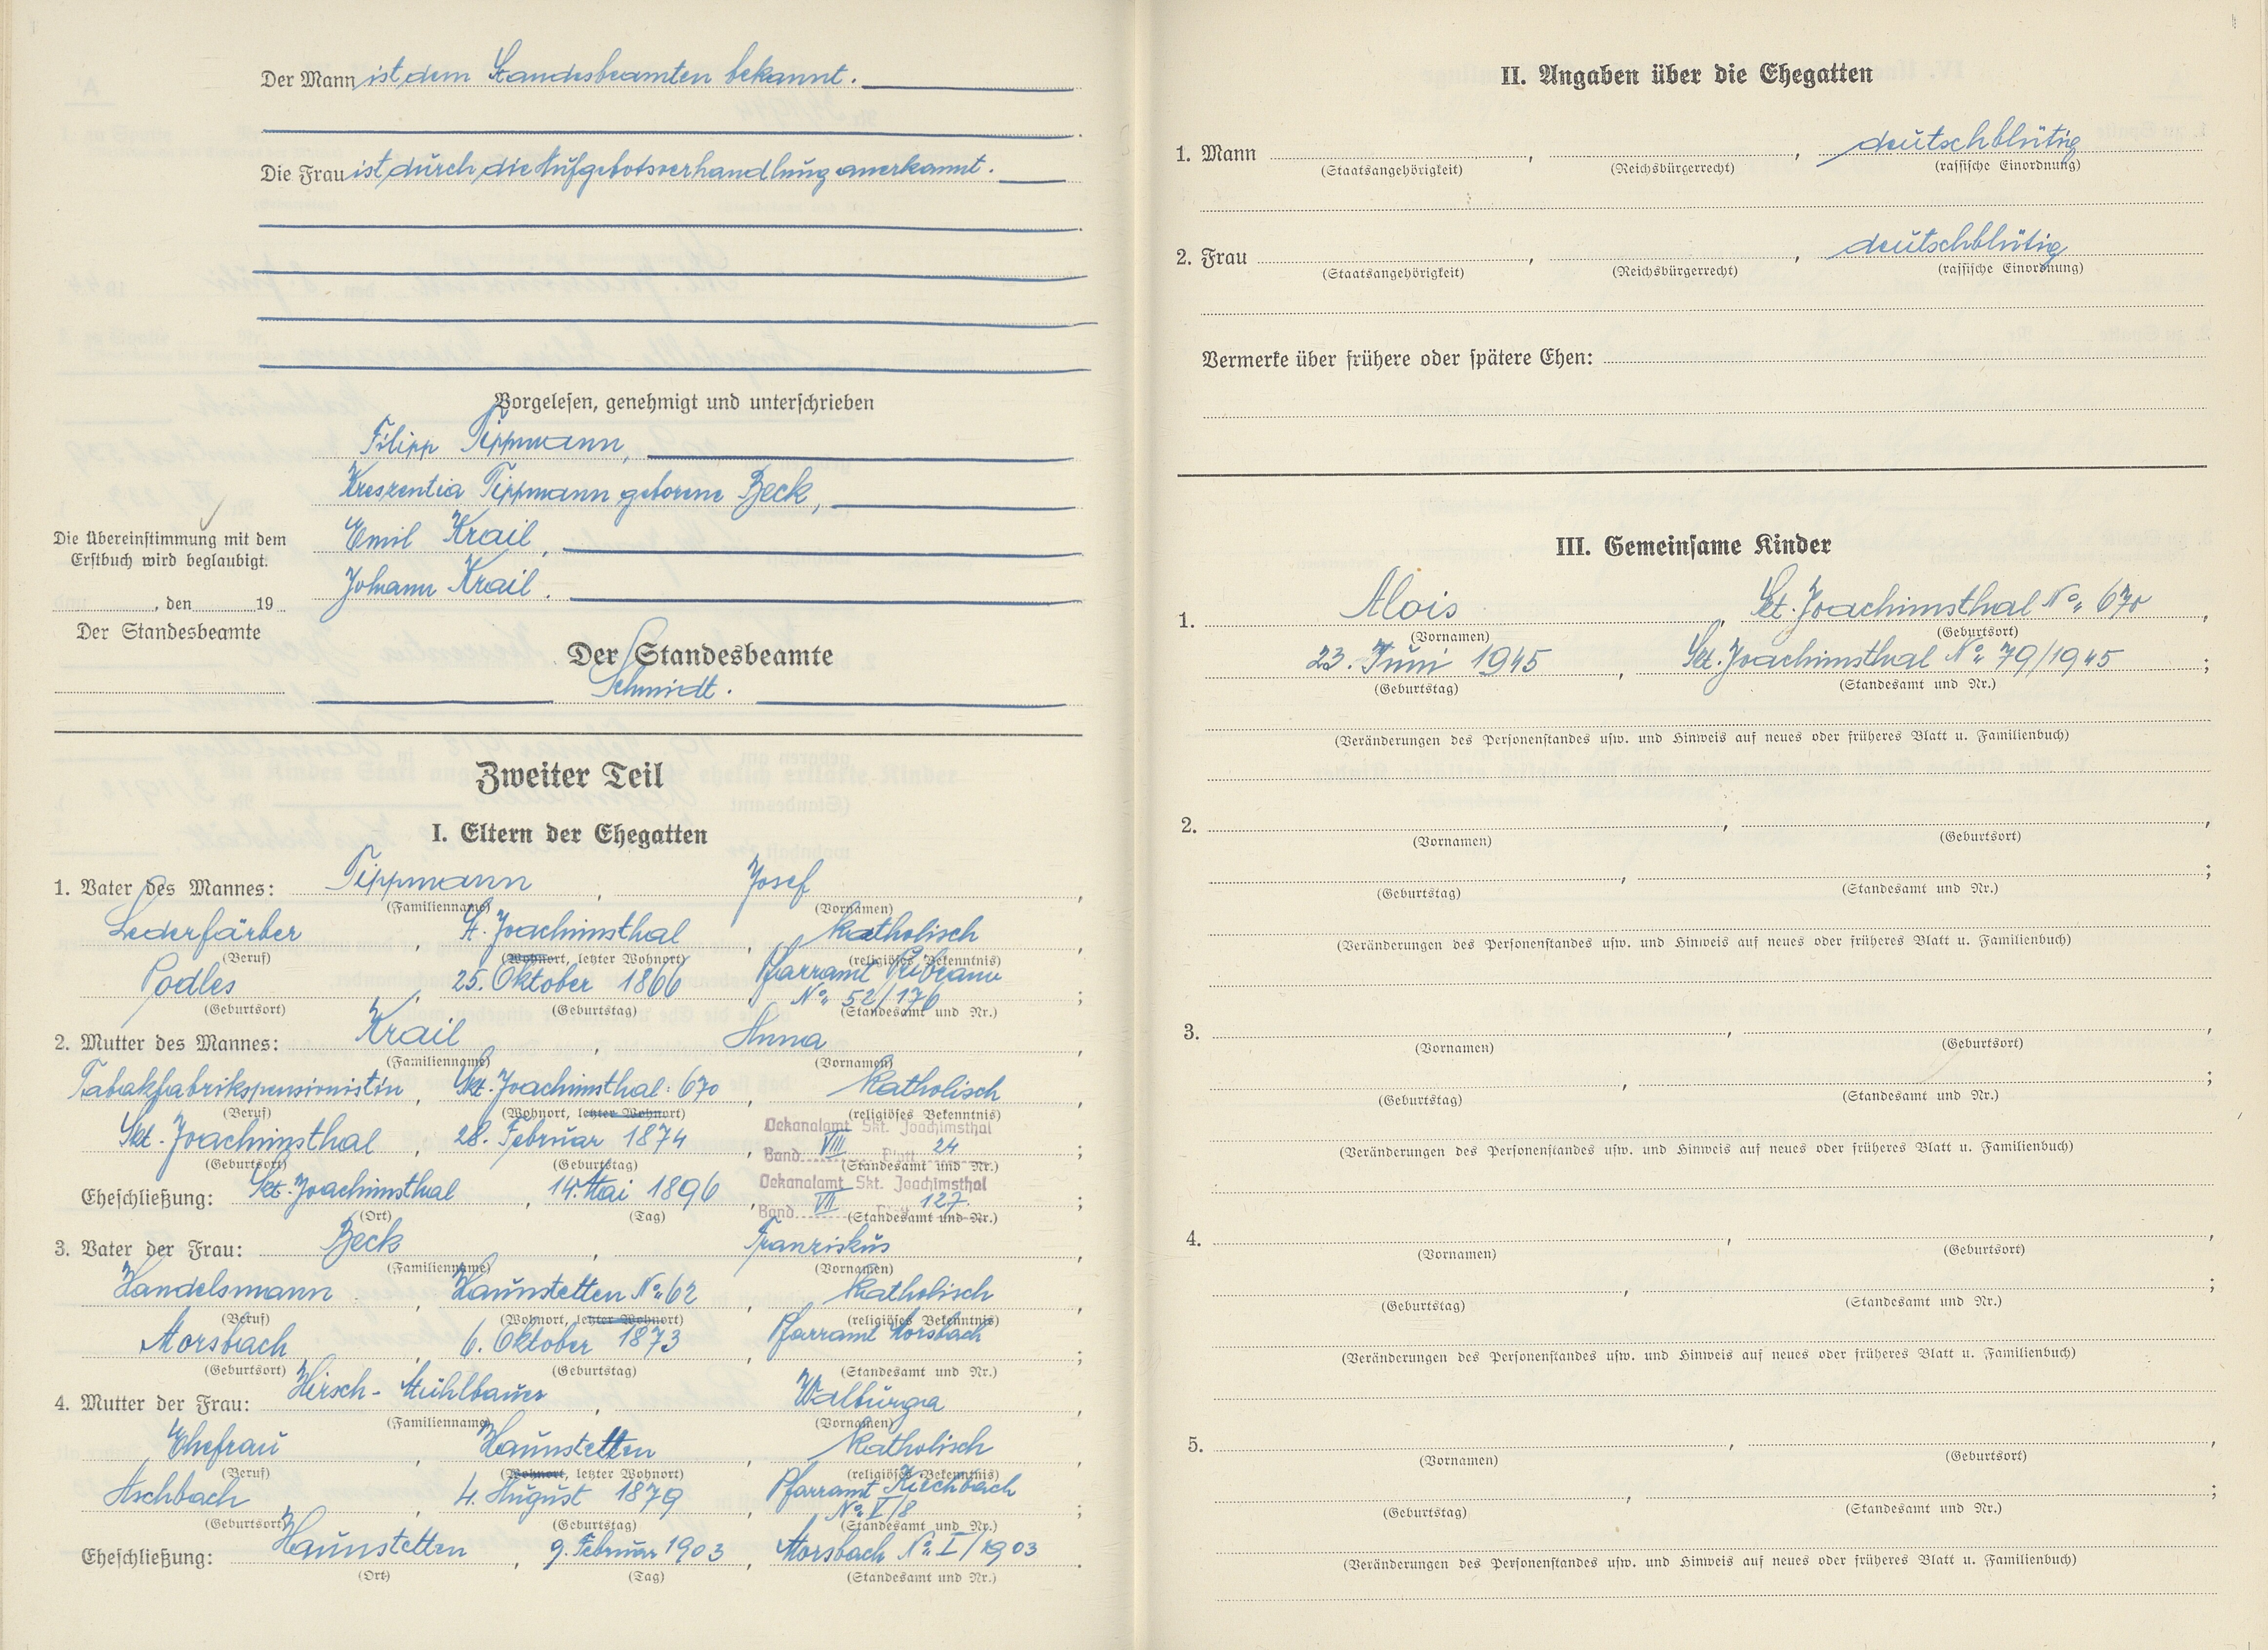 Der Mann ist dem Standesbeamten bekannt.
Die Frau ist durch die Aufgebotsverhandlung anerkannt.
Vorgelesen, genehmigt und unterschrieben
Filipp Tippmann,
Kreszentia Tippmann geborene Beck,
Emil Krail,
Johann Krail.
Die Übereinstimmung mit dem
Erstbuch wird beglaubigt.
, den 19
Der Standesbeamte
Der Standesbeamte
Schmidt.
Zweiter Teil
I. Eltern der Ehegatten
1. Vater des Mannes: Tippmann, Josef,
(Familienname) (Vornamen)
Lederfärber, St. Joachimsthal, katholisch,
(Beruf) (Wohnort, letzter Wohnort) (religiöses Bekenntnis)
Podles, 25. Oktober 1866 Pfarramt
No 52/176;
(Geburtsort) (Geburtstag) (Standesamt und Nr.)
2. Mutter des Mannes: Krail, Anna,
(Familienname) (Vornamen)
Tabakfabrikspensionistin, Skt. Joachimsthal: 670, katholisch
(Beruf) (Wohnort, letzter Wohnort) (religiöses Bekenntnis)
Skt. Joachimsthal, 28. Februar 1874, Dekanalamt Skt. Joachimsthal
Band VIII Blatt 24;
(Geburtsort) (Geburtstag) (Standesamt und Nr.)
Eheschließung: Skt. Joachimsthal, 14. Mai 1896, Dekanalamt Skt. Joachimsthal
Band VII 127.;
(Ort) (Tag) (Standesamt und Nr.)
3. Vater der Frau: Beck, Franziskus,
(Familienname) (Vornamen)
Handelsmann, Haunstetten No 62, katholisch,
(Beruf) (Wohnort, letzter Wohnort) (religiöses Bekenntnis)
Morsbach, 6. Oktober 1873, Pfarramt Morsbach;
(Geburtsort) (Geburtstag) (Standesamt und Nr.)
4. Mutter der Frau: Hirsch-Mühlbauer, Walburga,
(Familienname) (Vornamen)
Ehefrau, Haunstetten, katholisch,
(Beruf) (Wohnort, letzter Wohnort) (religiöses Bekenntnis)
Aschbach, 4. August 1879, Pfarramt Kirchbach
No V/8;
(Geburtsort) (Geburtstag) (Standesamt und Nr.)
Eheschließung: Haunstetten, 9. Februar 1903, Morsbach No I/1903.
(Ort) (Tag) (Standesamt und Nr.)
II. Angaben über die Ehegatten
1. Mann , , deutschblütig
(Staatsangehörigkeit) (Reichsbürgerrecht) (rassische Einordnung)
2. Frau , , deutschblütig
(Staatsangehörigkeit) (Reichsbürgerrecht) (rassische Einordnung)
Vermerke über frühere oder spätere Ehen:
III. Gemeinsame Kinder
1. Alois, Skt. Joachimsthal No 670,
(Vornamen) (Geburtsort)
23. Juni 1945, Skt. Joachimsthal No 79/1945;
(Geburtstag) (Standesamt und Nr.)
(Veränderungen des Personenstandes usw. und Hinweis auf neues oder früheres Blatt u. Familienbuch)
2. , ,
(Vornamen) (Geburtsort)
, ;
(Geburtstag) (Standesamt und Nr.)
(Veränderungen des Personenstandes usw. und Hinweis auf neues oder früheres Blatt u. Familienbuch)
3. , ,
(Vornamen) (Geburtsort)
, ;
(Geburtstag) (Standesamt und Nr.)
(Veränderungen des Personenstandes usw. und Hinweis auf neues oder früheres Blatt u. Familienbuch)
4. , ,
(Vornamen) (Geburtsort)
, ;
(Geburtstag) (Standesamt und Nr.)
(Veränderungen des Personenstandes usw. und Hinweis auf neues oder früheres Blatt u. Familienbuch)
5. , ,
(Vornamen) (Geburtsort)
, ;
(Geburtstag) (Standesamt und Nr.)
(Veränderungen des Personenstandes usw. und Hinweis auf neues oder früheres Blatt u. Familienbuch)